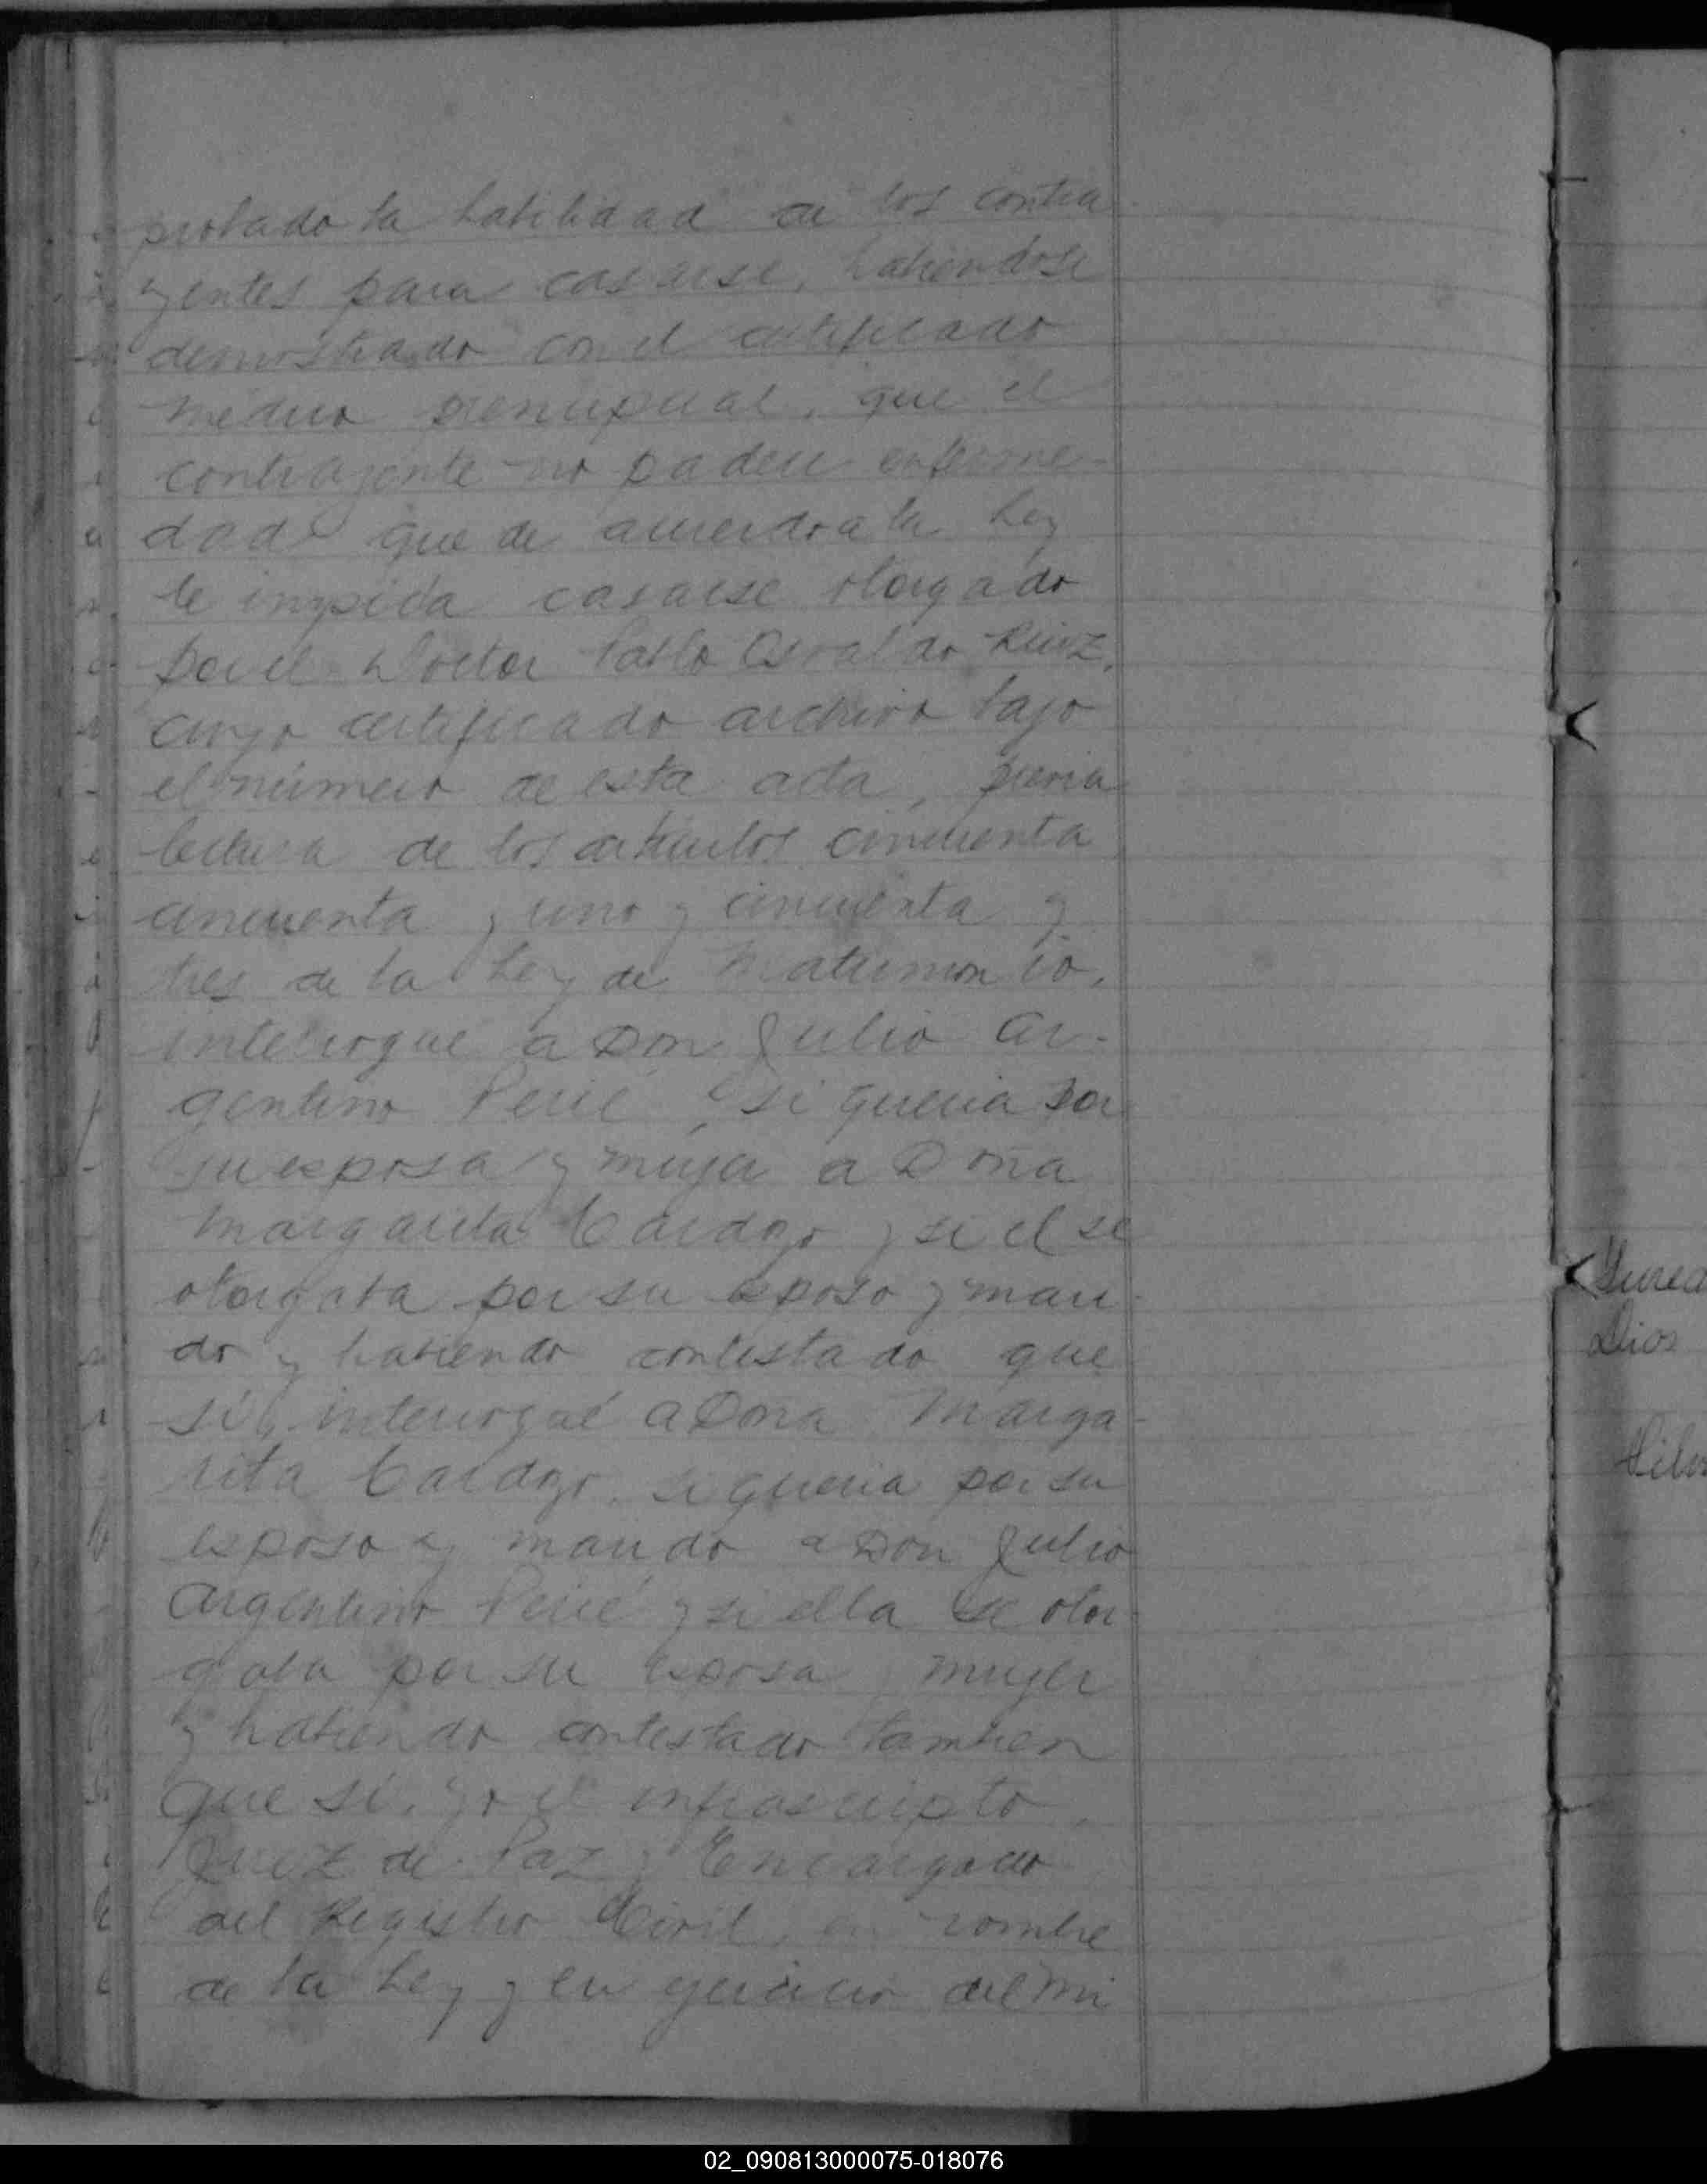 probado la habilidad de los contra
yentes para casarse, habiendose
demostrado con el certificado
médico prenupcial, que el
contrayente no padece enferme-
dad que de acuerdo a la Ley
le impida casarse otorgado
por el Doctor Pablo Osvaldo Ruiz,
cuyo certificado archivo bajo
el número de esta acta, previa
lectura de los artículos cincuenta
cincuenta y uno y cincuenta y
tres de la Ley de Matrimonio,
interrogué a Don Julio Ar-
gentino Perié, si queria por
su esposa y mujer a Doña
Margarita Cardozo y si el se
otorgaba por su esposo y mari-
do y habiendo contestado que
sí, interrogué a Doña Marga-
rita Cardozo, si queria por su
esposo y marido a Don Julio
Argentino Perié y si ella se otor-
gaba por su esposa y mujer
y habiendo contestado tambien
que sí, yo el infrascripto,
Juez de Paz y Encargado
del Registro Civil, en nombre
de la Ley y en ejercicio del mi
Dios
02_090813000075-018076